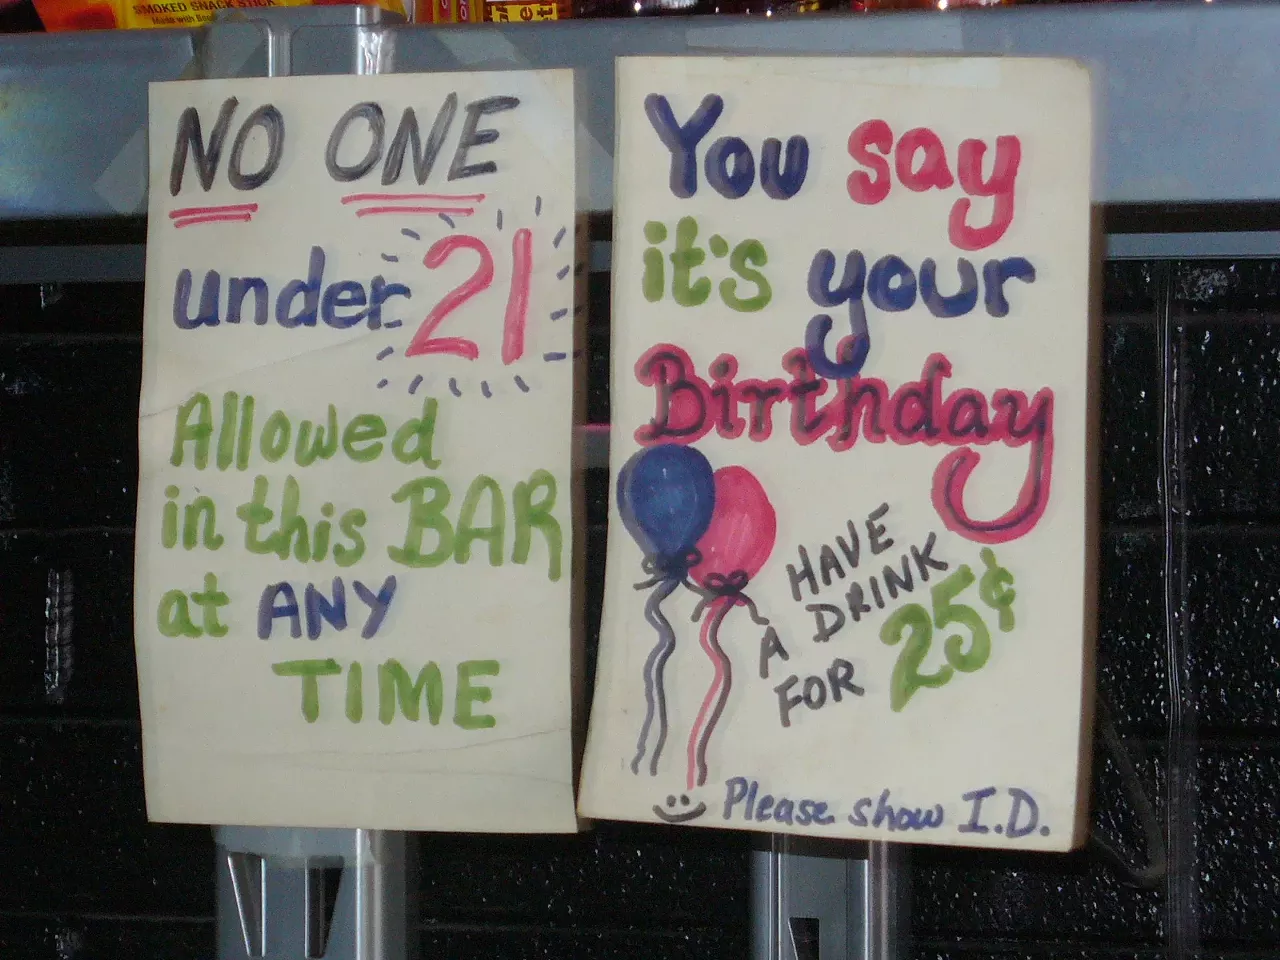 SMOKED SNACK STICK
NO ONE
under 21
Allowed
in this BAR
at ANY
TIME
You say
it's your
Birthday
HAVE
A DRINK
FOR 25¢
Please show I.D.